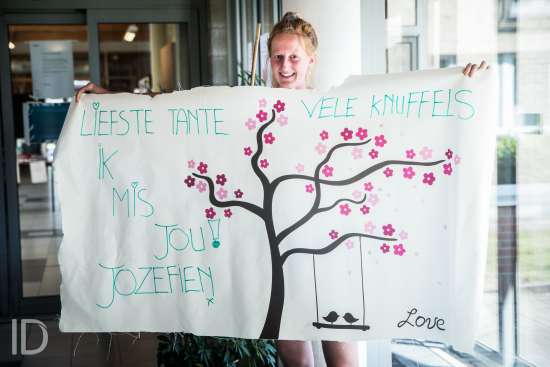 LIEFSTE TANTE
VELE KNUFFELS
IK
MIS
JOU!
JOZEFIEN
Love
ID